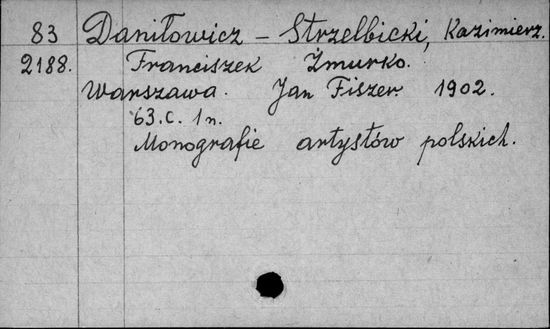 83 Daniłowicz - Strzelbicki, Kazimierz.
2188. Franciszek Żmurko.
Warszawa. Jan Fiszer 1902.
63.c. 1n.
Monografie artystów polskich.